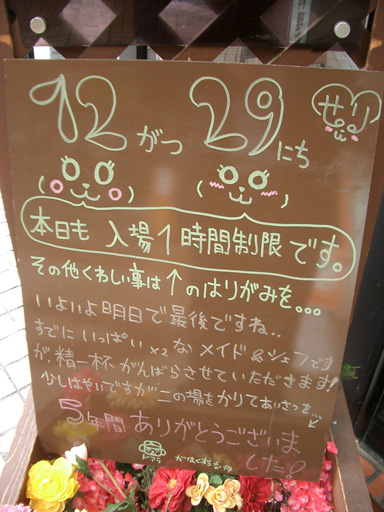 12がつ29にち
せり
本日も 入場1時間制限です。
その他くわしい事は↑のはりがみを...
いよいよ明日で最後ですね..
すでにいっぱい×2なメイド&シェフです
が、精一杯がんばらさせていただきます!
少しはやいですが、この場をかりてあいさつを...
5年間ありがとうございま
した